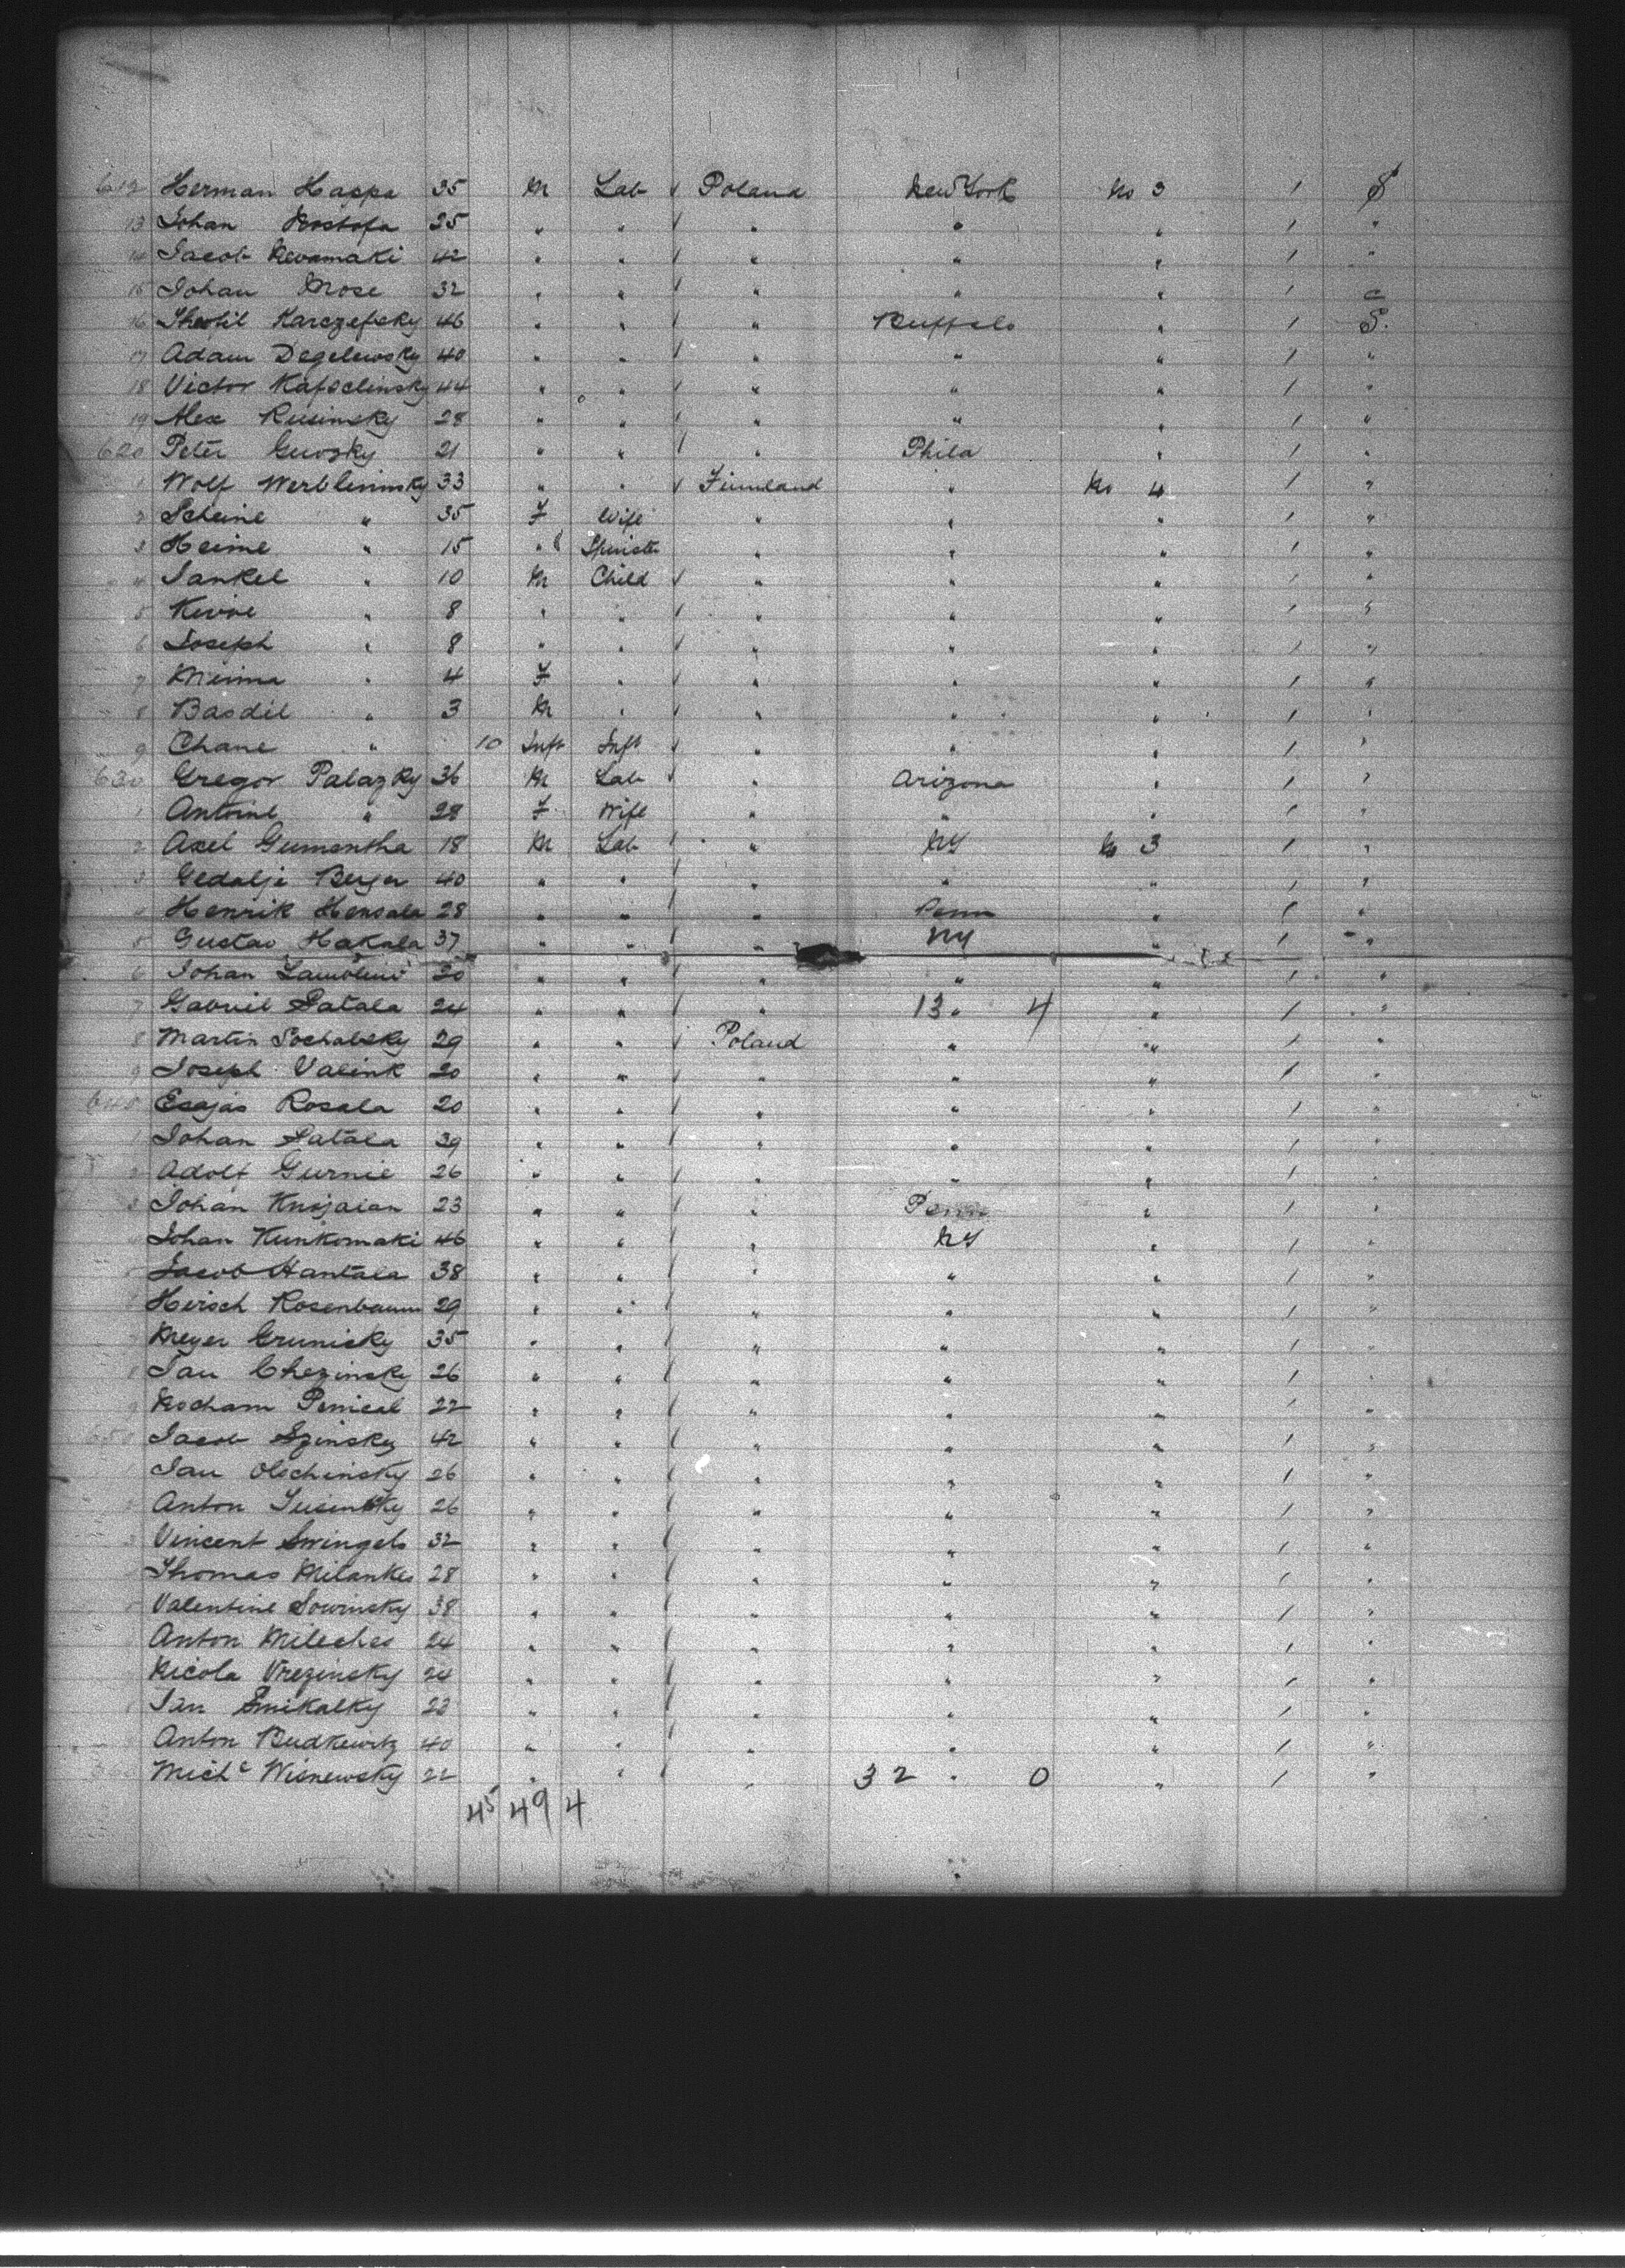 612 Herman Happa 35 M Lab / Poland New York No 3 1 S
13 Johan Rostofa 25 " " / " " " 1 "
14 Jacob Kevamaki 42 " " / " " " 1 "
15 Johan Mose 32 " " / " " " 1 C
16 Karczefsky 46 " " / " Buffalo " 1 S.
17 Adam Degelewsky 40 " " / " " " 1 "
18 Victor Kafselinsky 44 " " / " " " 1 "
19 Alex Rusinsky 28 " " / " " " 1 "
620 Peter Gurosky 21 " " / " Phila " 1 "
1 Wolf Werbleninsky 33 " " / Finnland " No 4 1 "
2 Scheine " 35 F Wife " " " 1 "
3 Heime " 15 " Spinster " " " 1 "
4 Jankel " 10 M Child / " " " 1 "
5 " 8 " " / " " " 1 "
6 Joseph " 8 " " / " " " 1 "
7 Minna " 4 F " / " " " 1 "
8 Basdil " 3 M " / " " " 1 "
9 Chane " 10 Inft Inft / " " " 1 "
630 Gregor Palazky 36 M Lab / " Arizona " 1 "
1 Antoine " 28 F Wife " " " 1 "
2 Axel Gumentha 18 M Lab / " NY No 3 1 "
3 Gedalje Berger 40 " " / " " " 1 "
4 Henrik Hensala 28 " " / " Penn " 1 "
5 Gustav Hakala 37 " " / " NY " 1 "
6 Johan 20 " " / " " " 1 "
7 Gabriel Satala 24 " " / " 13 " 4 " 1 "
8 Martin Sochalsky 29 " " / Poland " " 1 "
9 Joseph Valink 20 " " / " " " 1 "
640 Esajas Rosala 20 " " / " " " 1 "
1 Johan Satala 39 " " / " " " 1 "
2 Adolf Gurnie 26 " " / " " " 1 "
3 Johan Knojalan 23 " " / " Penn " 1 "
Johan Kunkomaki 46 " " / " NY " 1 "
Jacob Hantala 38 " " / " " " 1 "
Hirsch Rosenbaum 29 " " / " " " 1 "
Meyer Grunicky 35 " " / " " " 1 "
8 Jan Chezinsky 26 " " / " " " 1 "
9 Penical 22 " " / " " " 1 "
650 Jacob Szinsky 42 " " / " " " 1 "
1 Jan Olschinsky 26 " " / " " " 1 "
2 Anton 26 " " / " " " 1 "
3 Vincent Swingels 32 " " / " " " 1 "
Thomas Milankes 28 " " / " " " 1 "
Valentine Sowinsky 38 " " / " " " 1 "
Anton Mileches 24 " " / " " " 1 "
Nicola Vrezinsky 24 " " / " " " 1 "
Jan Smikalky 22 " " / " " " 1 "
Anton Budkewitz 40 " " / " " " 1 "
Michc Wisnewsky 22 " " / " 32 " 0 " 1 "
45 49 4